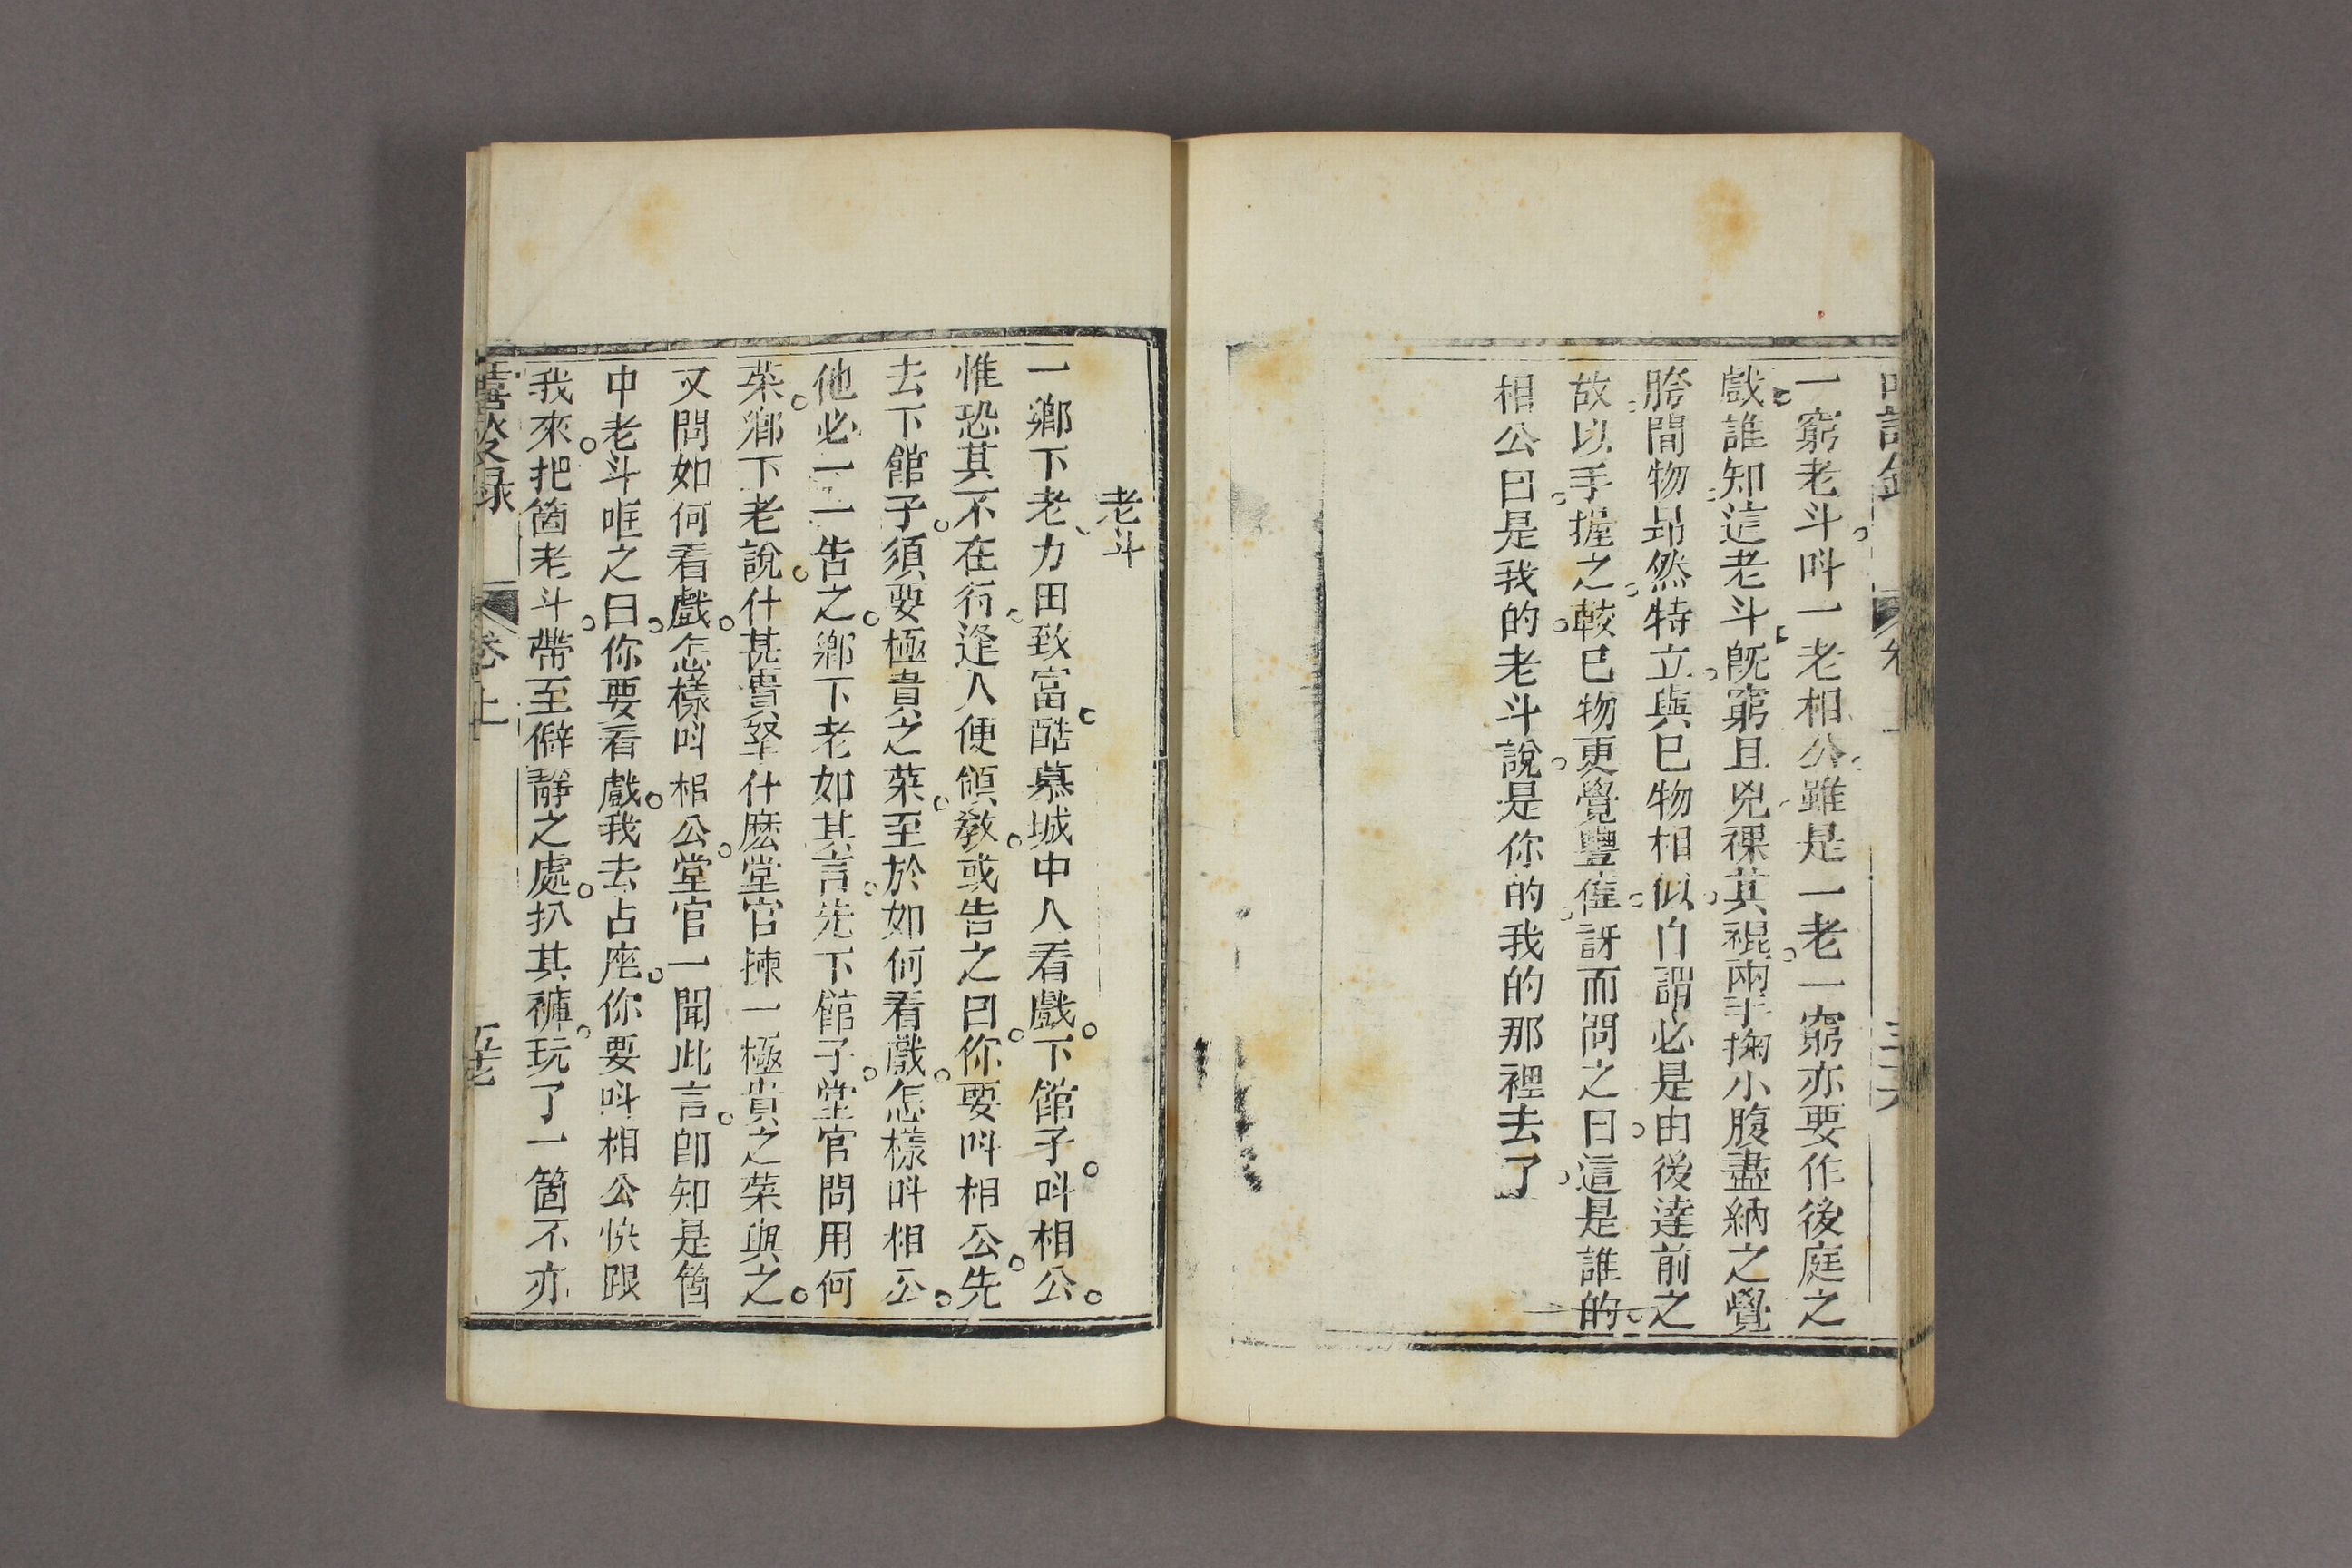 一窮老斗呌一老相公雖是一老一窮亦要作後庭之
戲誰知這老斗旣窮且兇祼其裩兩手掬小腹盡納之覺
胯間物昂然特立與已物相似自謂必是由後達前之
故以手握之較已物更覺豐隆訝而問之曰這是誰的
相公曰是我的老斗說是你的我的那裡去了
老斗
一鄉下老力田致富酷慕城中人看戲下館子呌相公
惟恐其不在行逢人便領敎或告之曰你要呌相公先
去下館子須要極貴之菜至於如何看戲怎樣呌相公
他必一一告之鄉下老如其言先下館子堂官問用何
菜鄉下老說什甚貴拏什麽堂官揀一極貴之菜與之
又問如何看戲怎樣呌相公堂官一聞此言卽知是箇
中老斗哐之曰你要看戲我去占座你要呌相公快跟
我來把箇老斗帶至僻靜之處扒其褲玩了一箇不亦
卷上